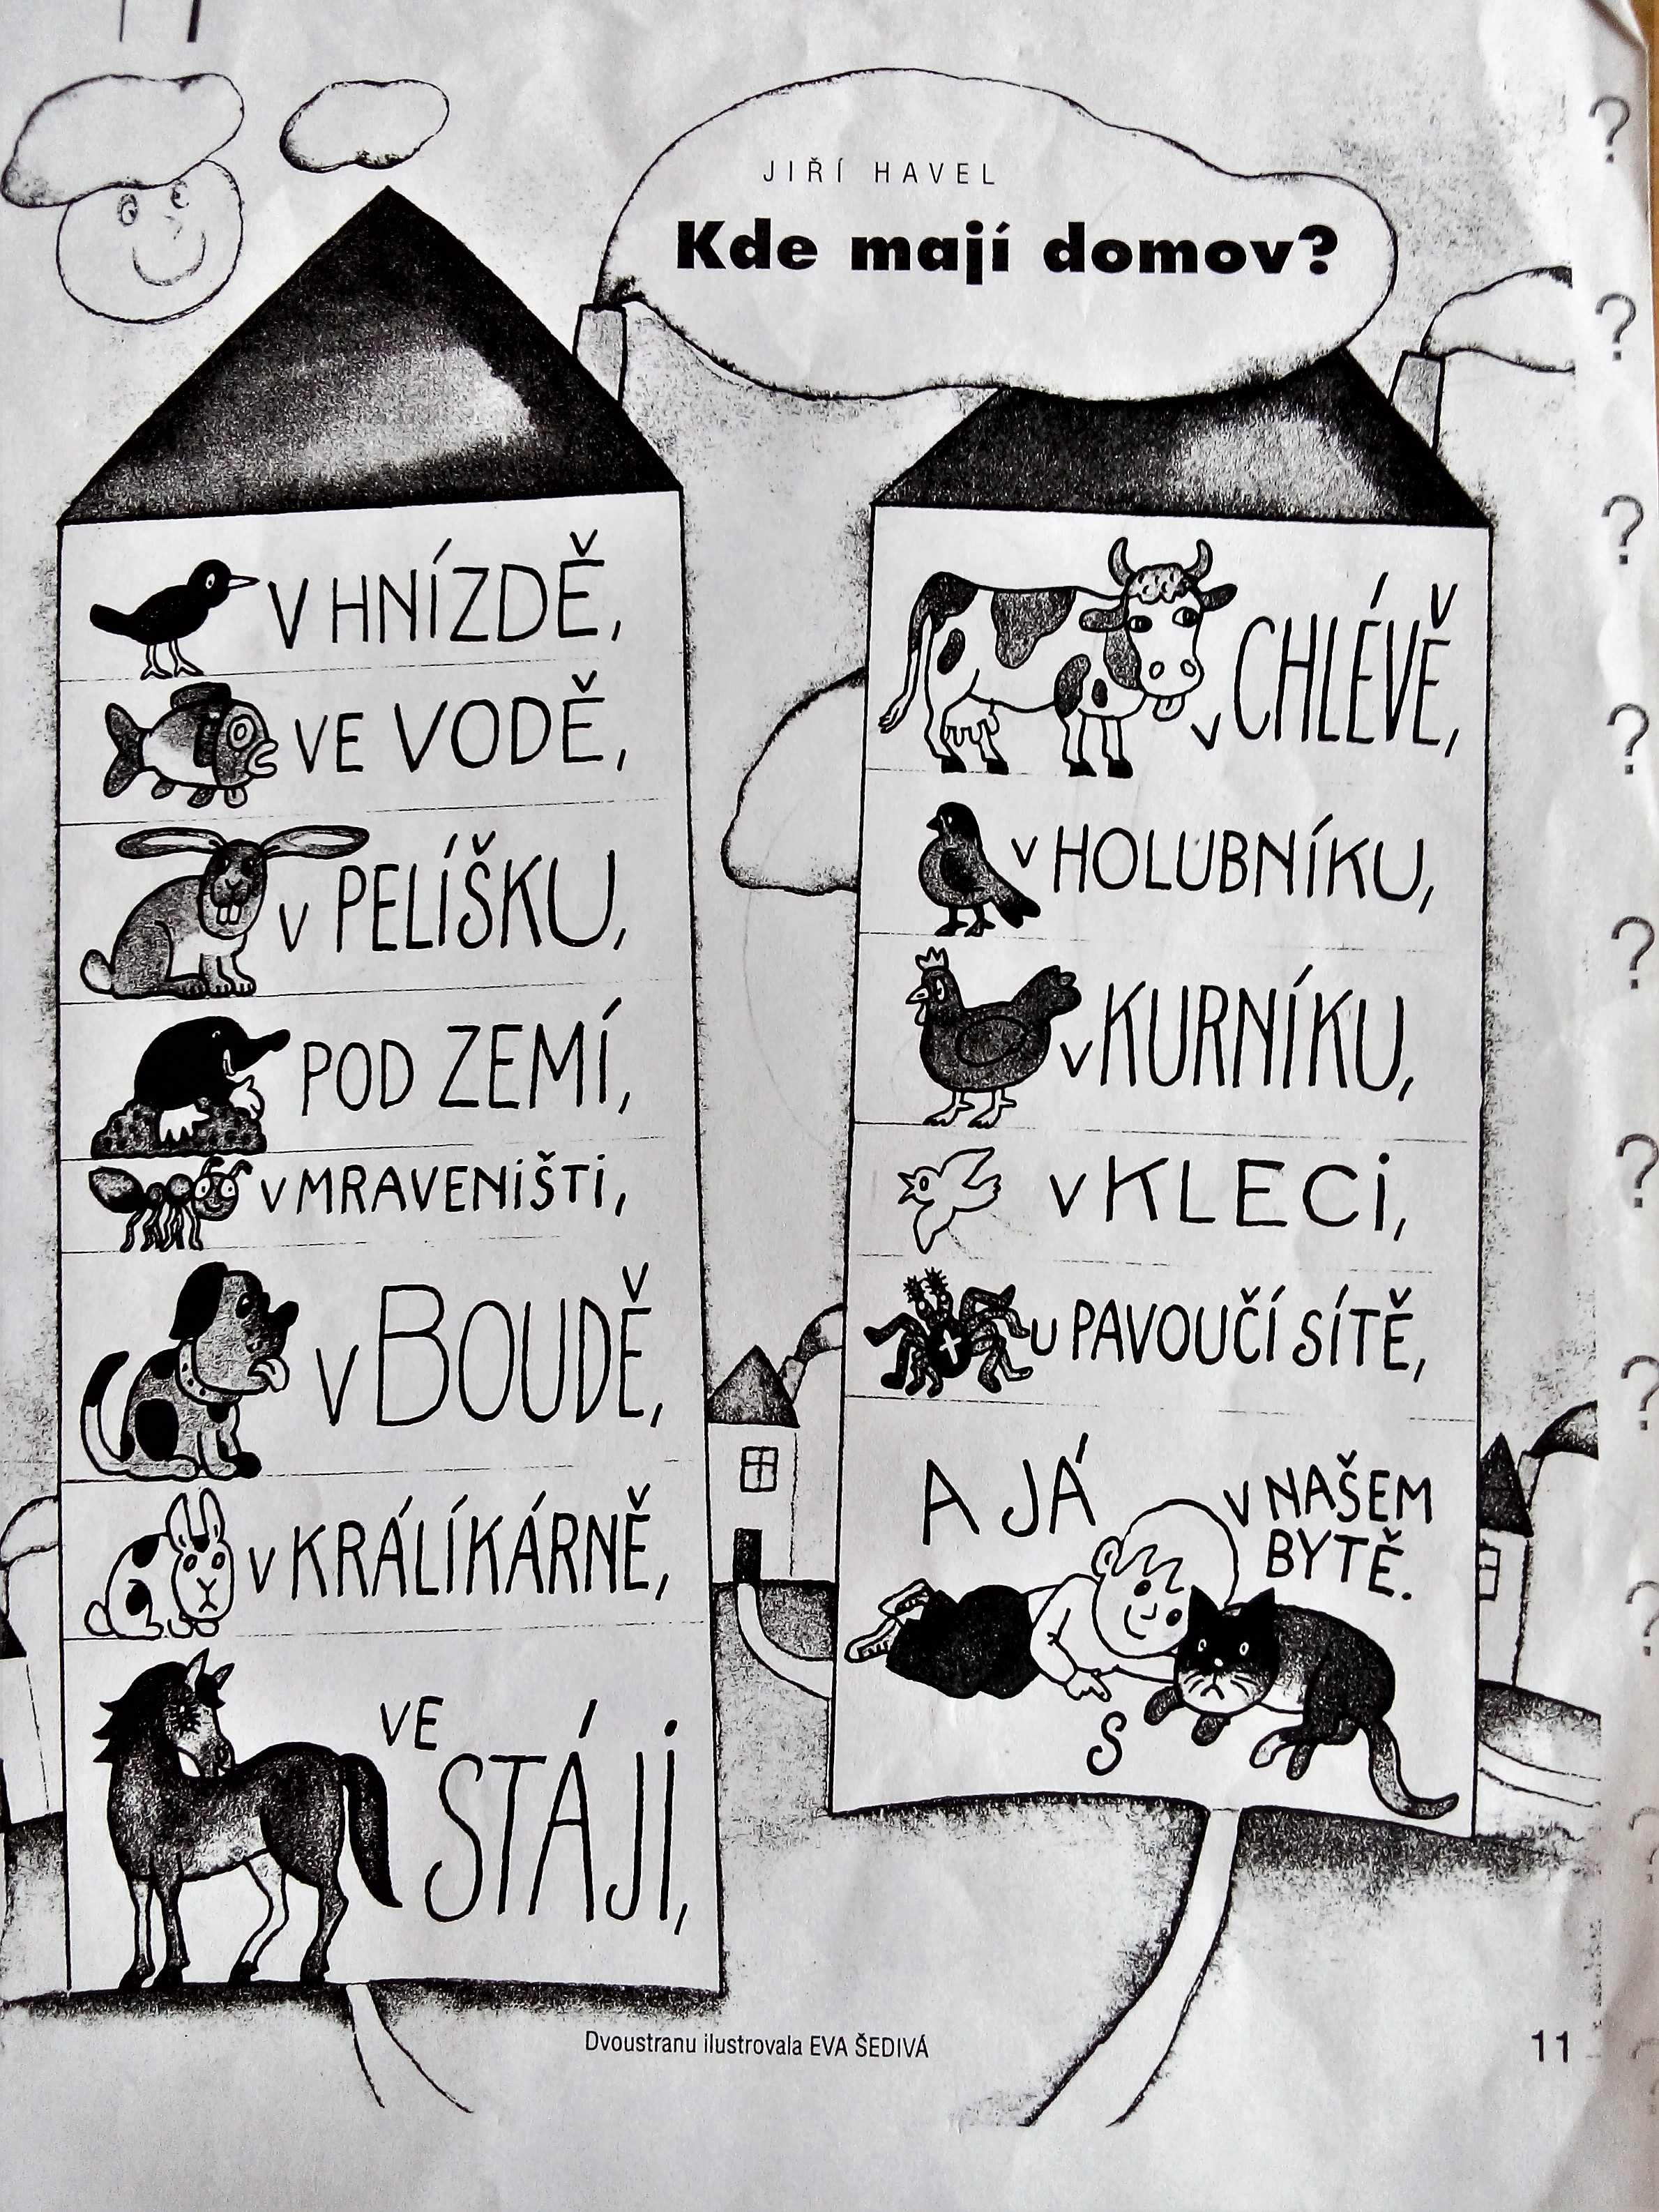 JIŘÍ HAVEL
Kde mají domov?
V HNÍZDĚ,
VE VODĚ,
V PELÍŠKU,
POD ZEMÍ,
V MRAVENiŠTi,
V BOUDĚ,
V KRÁLÍKÁRNĚ,
VE
STÁJi,
V CHLÉVĚ,
V HOLUBNÍKU,
V KURNÍKU,
V KLECi,
U PAVOUČÍ SÍTĚ,
A JÁ
V NAŠEM
BYTĚ.
S
Dvoustranu ilustrovala EVA ŠEDIVÁ
11
?
?
?
?
?
?
?
?
?
?